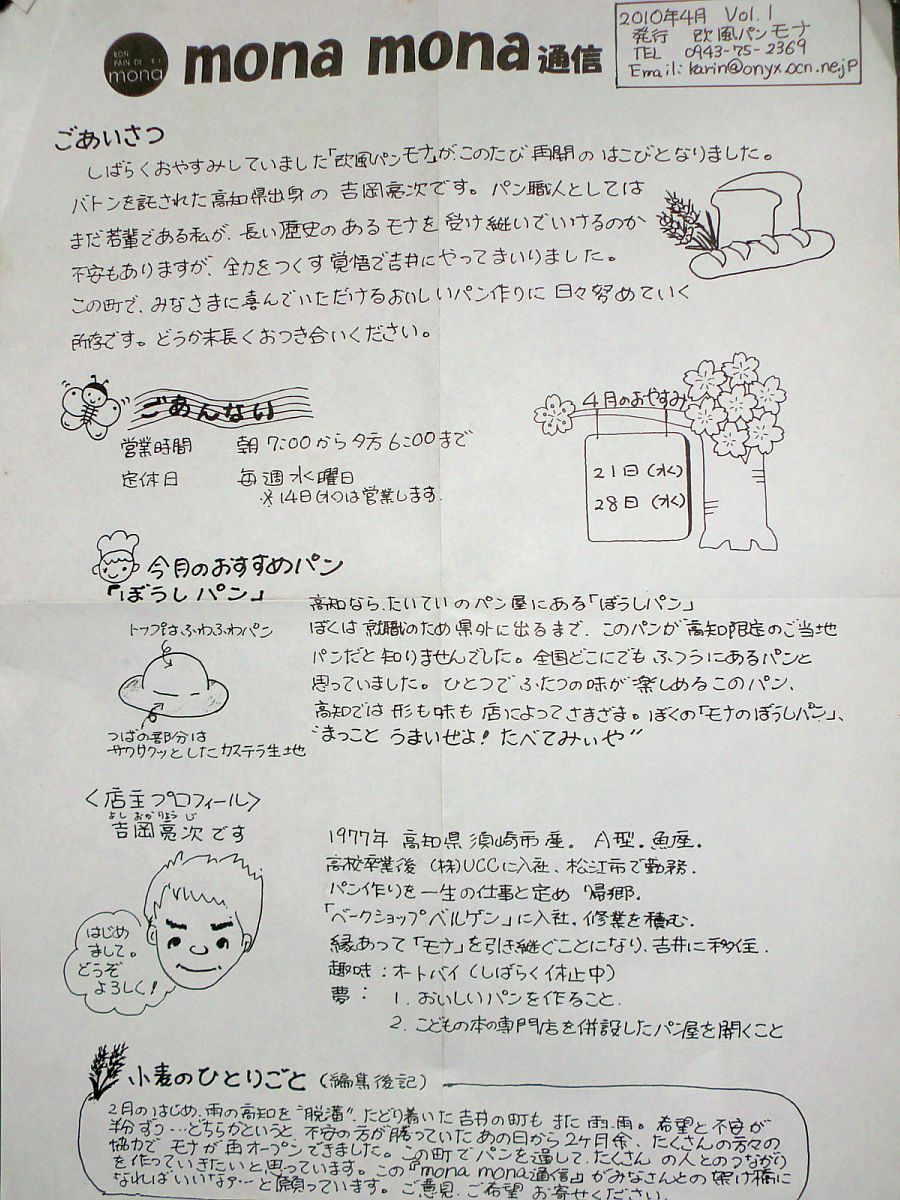 BON
PAIN DE
mona
mona mona 通信
2010年4月 Vol.1
発行 欧風パンモナ
TEL 0943-75-2369
Email: karin@onyx.ocn.ne.jp
ごあいさつ
しばらくおやすみしていました「欧風パンモナ」が、このたび再開のはこびとなりました。
バトンを託された高知県出身の 吉岡亮次です。パン職人としては
まだ若輩である私が、長い歴史のあるモナを受け継いでいけるのか
不安もありますが、全力をつくす覚悟で吉井にやってまいりました。
この町で、みなさまに喜んでいただけるおいしいパン作りに日々努めていく
所存です。どうか末長くおつき合いください。
ごあんない
営業時間 朝7:00から夕方6:00まで
定休日 毎週水曜日
※14日(水)は営業します.
4月のおやすみ
21日(水)
28日(水)
今月のおすすめパン
「ぼうしパン」
トップはふわふわパン
つばの部分は
サクサクッとしたカステラ生地
高知なら、たいていのパン屋にある「ぼうしパン」
ぼくは就職のため県外に出るまで、このパンが高知限定のご当地
パンだと知りませんでした。全国どこにでもふつうにあるパンと
思っていました。ひとつでふたつの味が楽しめるこのパン、
高知では形も味も店によってさまざま。ぼくの「モナのぼうしパン」、
“まっこと うまいぜよ!たべてみぃや”
〈店主プロフィール〉
よしおかりょうじ
吉岡亮次です
はじめ
まして。
どうぞ
よろしく!
1977年 高知県須崎市産. A型.魚座.
高校卒業後 (株)UCCに入社、松江市で勤務.
パン作りを一生の仕事と定め 帰郷.
「ベークショップベルゲン」に入社.修業を積む.
縁あって「モナ」を引き継ぐことになり、吉井に移住.
趣味:オートバイ(しばらく休止中)
夢: 1. おいしいパンを作ること.
2. こどもの本の専門店を併設したパン屋を開くこと
小麦のひとりごと(編集後記)
2月のはじめ、雨の高知を“脱藩”、たどり着いた吉井の町もまた雨、雨。希望と不安が
半分ずつ…どちらかというと、不安の方が勝っていたあの日から2ヶ月余、たくさんの方々の
協力でモナが再オープンできました。この町でパンを通して、たくさんの人とのつながり
を作っていきたいと思っています。この『mona mona通信』がみなさんとの架け橋に
なればいいなァ…と願っています。ご意見、ご希望 お寄せください.